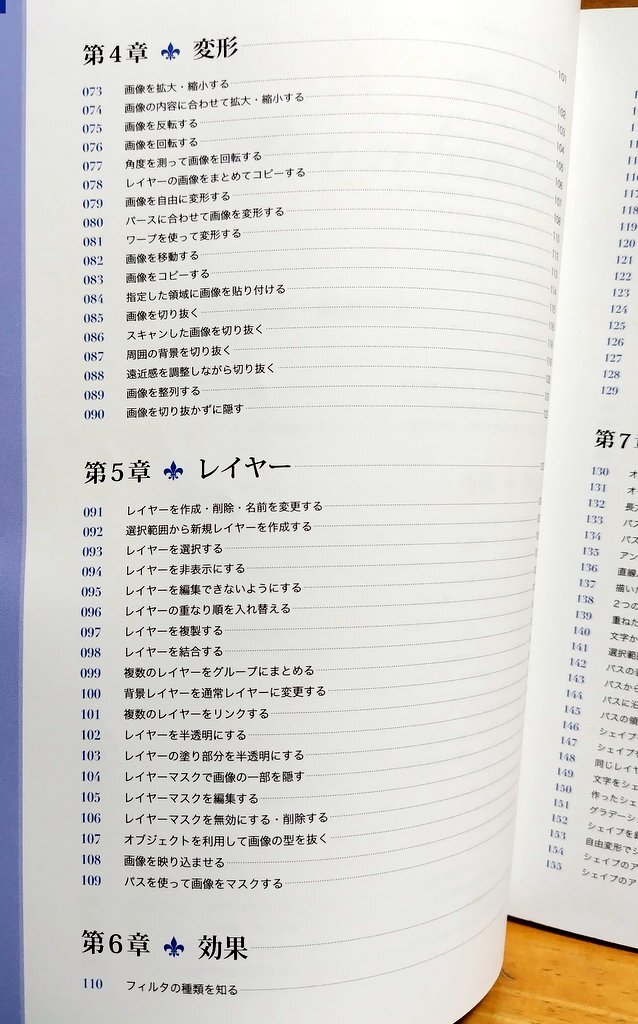 第4章 変形
073 画像を拡大・縮小する 101
074 画像の内容に合わせて拡大・縮小する 102
075 画像を反転する 103
076 画像を回転する 104
077 角度を測って画像を回転する 105
078 レイヤーの画像をまとめてコピーする 106
079 画像を自由に変形する 107
080 パースに合わせて画像を変形する 108
081 ワープを使って変形する 110
082 画像を移動する 112
083 画像をコピーする 113
084 指定した領域に画像を貼り付ける 114
085 画像を切り抜く 115
086 スキャンした画像を切り抜く 116
087 周囲の背景を切り抜く
088 遠近感を調整しながら切り抜く
089 画像を整列する
090 画像を切り抜かずに隠す
第5章 レイヤー
091 レイヤーを作成・削除・名前を変更する
092 選択範囲から新規レイヤーを作成する
093 レイヤーを選択する
094 レイヤーを非表示にする
095 レイヤーを編集できないようにする
096 レイヤーの重なり順を入れ替える
097 レイヤーを複製する
098 レイヤーを結合する
099 複数のレイヤーをグループにまとめる
100 背景レイヤーを通常レイヤーに変更する
101 複数のレイヤーをリンクする
102 レイヤーを半透明にする
103 レイヤーの塗り部分を半透明にする
104 レイヤーマスクで画像の一部を隠す
105 レイヤーマスクを編集する
106 レイヤーマスクを無効にする・削除する
107 オブジェクトを利用して画像の型を抜く
108 画像を映り込ませる
109 パスを使って画像をマスクする
第6章 効果
110 フィルタの種類を知る
116
117
118
119
120
121
122
123
124
125
126
127
128
129
第7
130 オ
131 オ
132 長
133 パス
134 パス
135 アン
136 直線
137 描い
138 2つの
139 重ねた
140 文字か
141 選択範
142 パスの
143 パスから
144 パスに沿
145 パスの領
146 シェイプ
147 シェイプを
148 同じレイヤ
149 文字をシェ
150 作ったシェ
151 グラデーシ
152 シェイプを
153 自由変形でシ
154 シェイプのア
155 シェイプのア